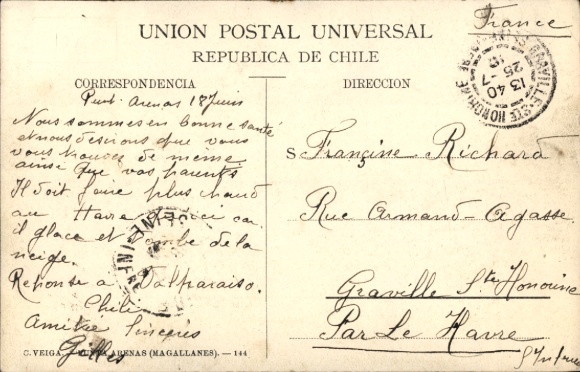 France
UNION POSTAL UNIVERSAL
REPUBLICA DE CHILE
CORRESPONDENCIA
DIRECCION
GRAVILLE-STE HONORINE
13 40
25-7
Arenas 18 Juin
Nous sommes en bonne santé
et nous desirons que vous
vous de meme
ainsi que vos parents
Il doit faire plus chaud
au Havre qu'ici car
il glace et tombe de la
neige.
Reponse a Valparaiso.
Chili
Amitié Sincères
Gilles
S
Françine Richard
Rue Armand-Agasse
Graville Ste Honorine
Par Le Havre
SEINE-INFRE
C. VEIGA. — PUNTA ARENAS (MAGALLANES). — 144